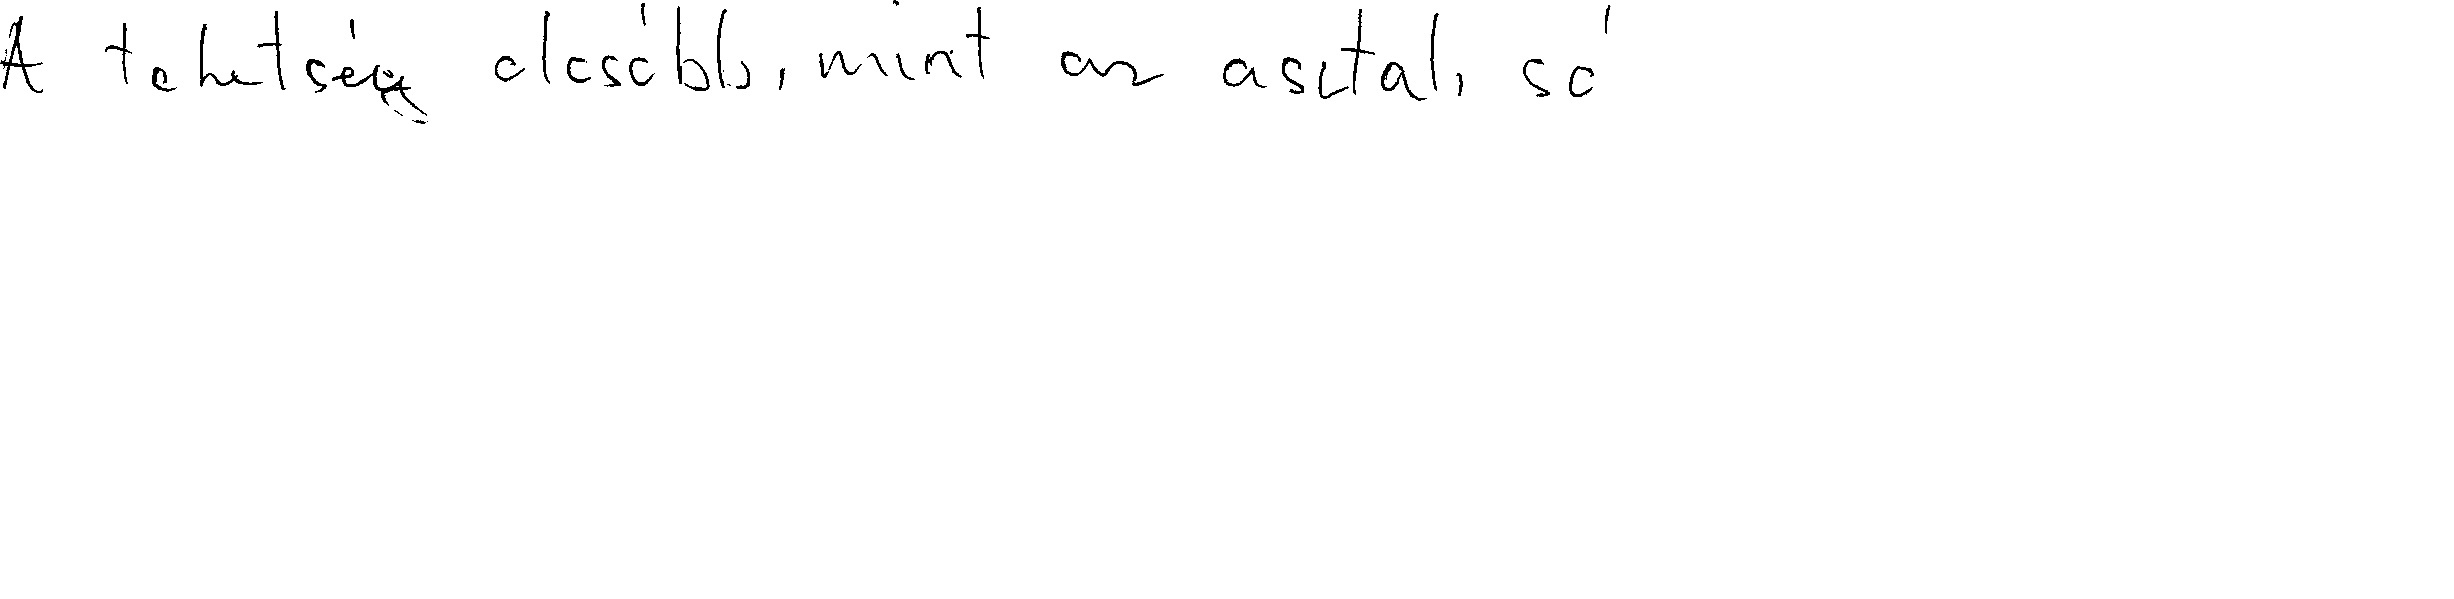 A tehetség olcsóbb, mint az asztal, só